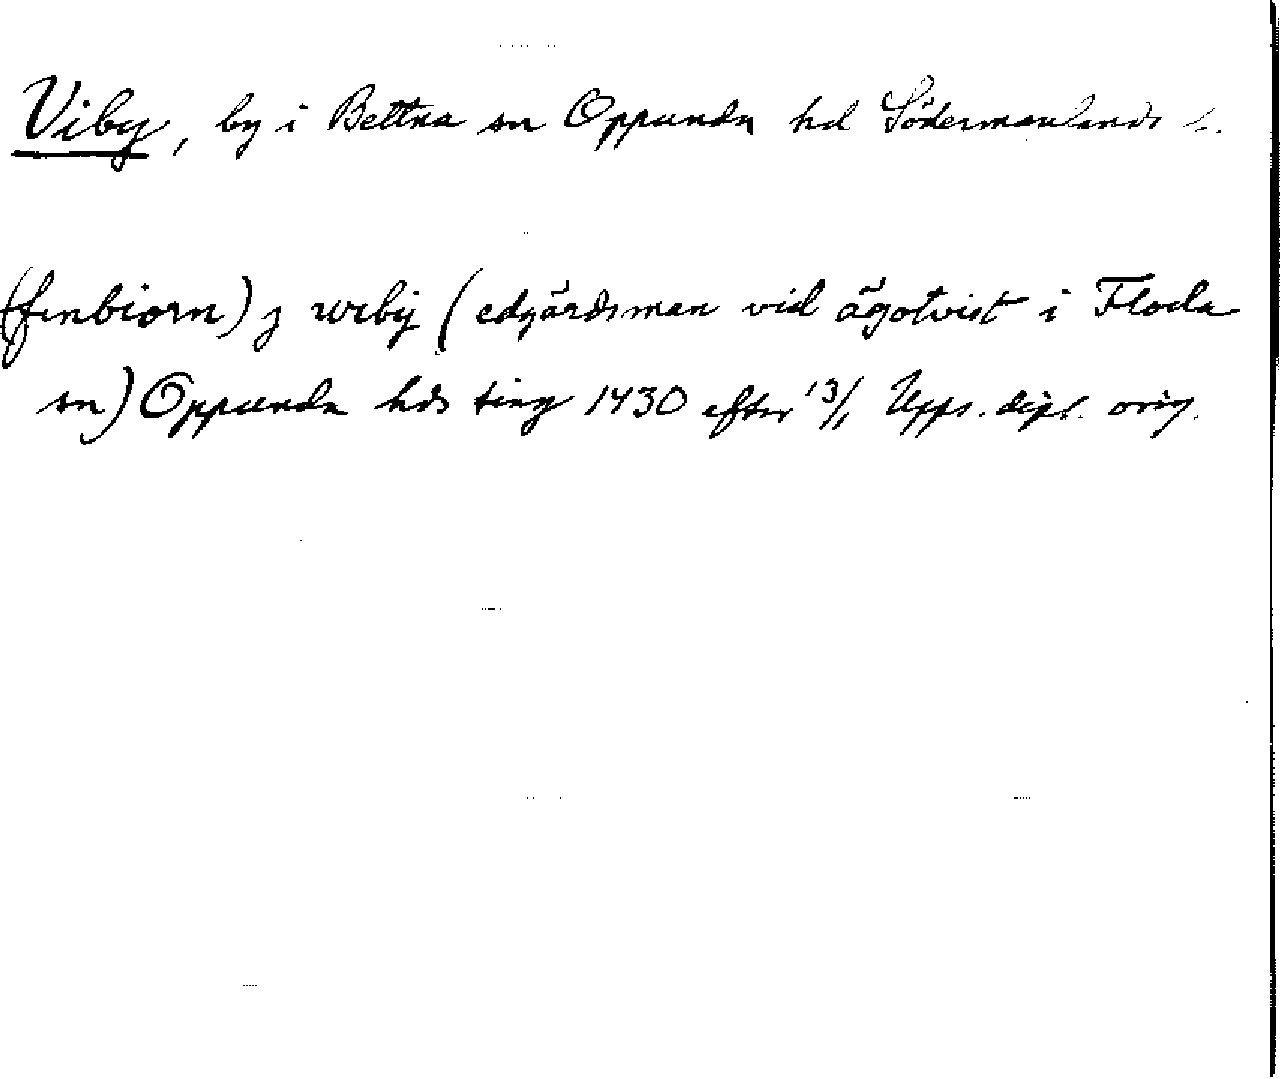 Viby, by i Bettna sn Oppunda hd Södermanlands l.
(finbiorn) j wiby (edgärdsman vid ägotvist i Floda
sn) Oppunda hds ting 1430 efter 13/1 Upps. dipl. orig.